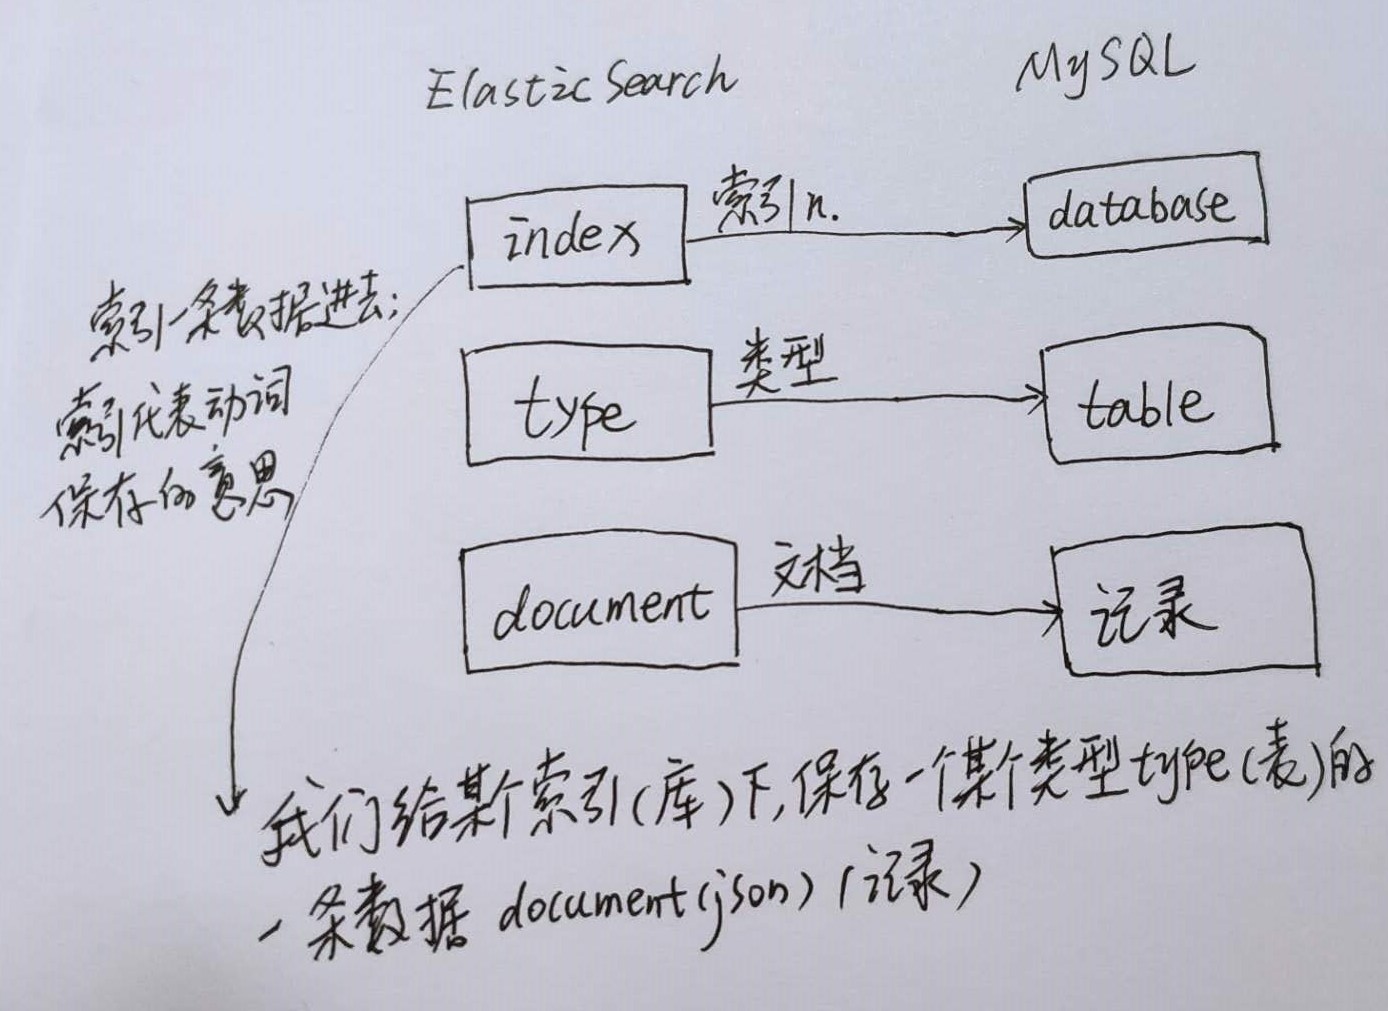 Elastic Search
MySQL
index
索引 n.
database
索引一条数据进去;
索引代表动词
保存的意思
type
类型
table
document
文档
记录
我们给某个索引(库)下,保存一个某个类型type(表)的
一条数据 document(json)(记录)